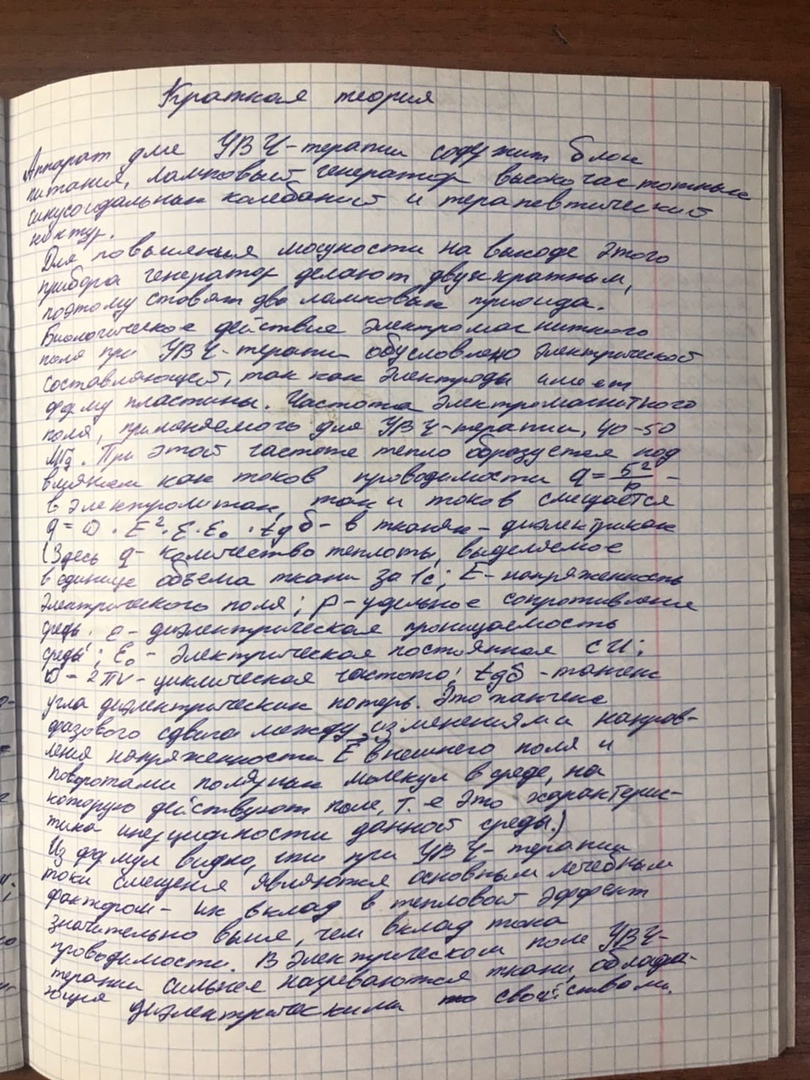 Краткая теория
Аппарат для УВЧ-терапии содержит блок
питания, ламповый генератор высокочастотных
синусоидальных колебаний и терапевтический
контур.
Для повышения мощности на выходе этого
прибора генератор делают двухкратным,
поэтому ставят два ламповых триода.
Биологическое действие электромагнитного
поля при УВЧ-терапии обусловлено электрической
составляющей, так как электроды имеют
форму пластины. Частота электромагнитного
поля, применяемого для УВЧ-терапии, 40-50
МГц. При этой частоте тепло образуется под
влиянием как токов проводимости q = E²/ρ -
в электролитах, так и токов смещается
q = ω · E² · ε · ε₀ · tg δ - в тканях - диэлектриках
(Здесь q - количество теплоты, выделяемое
в единице объема ткани за 1с; E - напряженность
электрического поля; ρ - удельное сопротивление
среды; ε - диэлектрическая проницаемость
среды; ε₀ - электрическая постоянная СИ;
ω - 2πν - циклическая частота; tg δ - тангенс
угла диэлектрических потерь. Это тангенс
фазового сдвига между изменениями направ-
ления напряженности E внешнего поля и
поворотами полярных молекул в среде, на
которую действуют поле, т. е это характерис-
тика инерциальности данной среды.)
Из формул видно, что при УВЧ-терапии
токи смещения являются основным лечебным
фактором - их вклад в тепловой эффект
значительно выше, чем вклад тока
проводимости. В электрическом поле УВЧ-
терапии сильнее нагреваются ткани, облада-
ющие диэлектрическими свойствами.